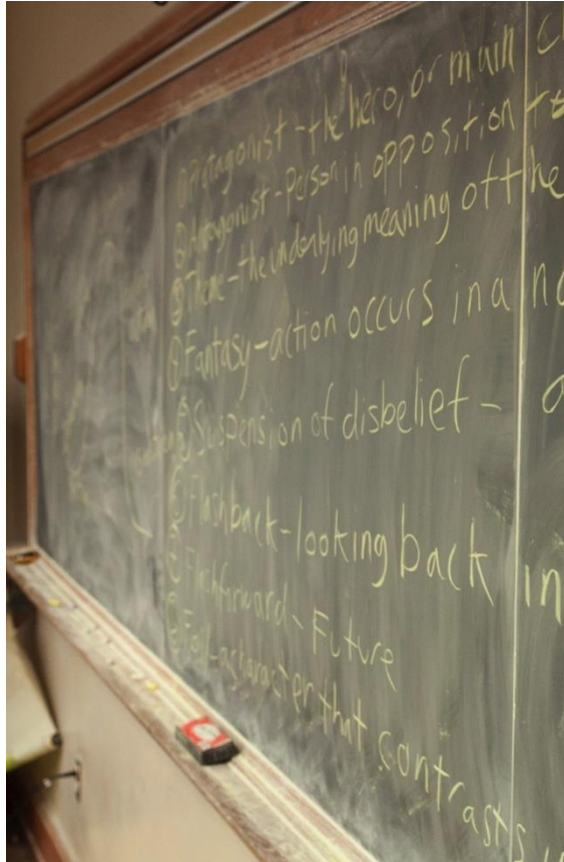 ① Protagonist - the hero, or main c
② Antagonist - Person in opposition to
③ Theme - the underlying meaning of the
④ Fantasy - action occurs in a no
⑤ Suspension of disbelief - a
⑥ Flashback - looking back in
⑦ Flashforward - Future
⑧ Foil - a character that contrasts